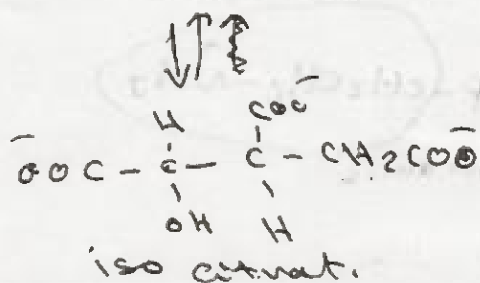 H COO⁻
⁻OOC - C - C - CH2COO⁻
OH H
iso citrat.